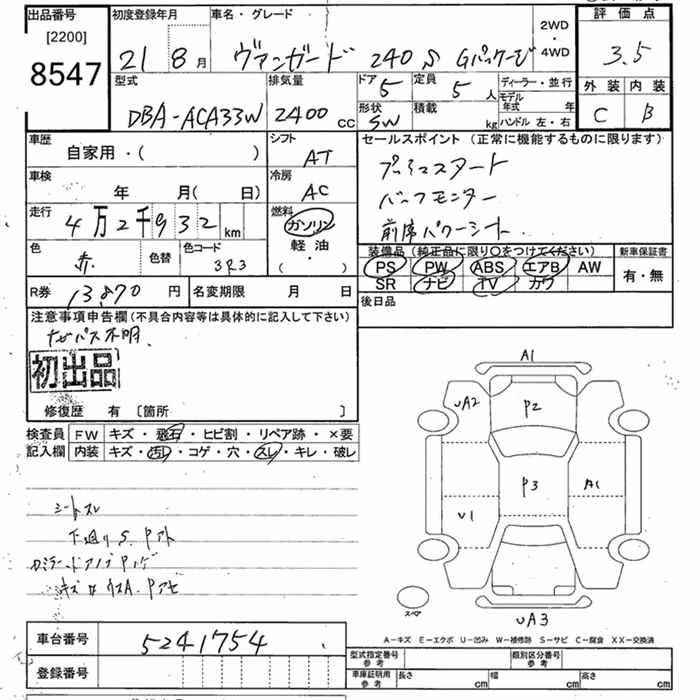 出品番号
[2200]
8547
初度登録年月
21 8月
車名・グレード
ヴァンガード 240 S Gパッケージ
2WD
・
4WD
評価点
3.5
外装 内装
C B
型式
DBA-ACA33W
排気量
2400 cc
ドア
5
定員
5 人
形状
SW
積載
kg
ディーラー・並行
モデル年式 年
ハンドル 左・右
車歴
自家用・( )
シフト
AT
セールスポイント (正常に機能するものに限ります)
プッシュスタート
バックモニター
前席パワーシート
車検
年 月( 日)
冷房
AC
走行
4万2千932km
燃料
ガソリン
軽油
・( )
色
赤
色替
色コード
3R3
装備品 (純正品に限り○をつけてください)
PS PW ABS エアB AW
SR ナビ TV カワ
新車保証書
有・無
R券 13,870 円
名変期限 月 日
後日品
注意事項申告欄 (不具合内容等は具体的に記入して下さい)
ナビパス不明
初出品
修復歴 有 [箇所 ]
検査員
記入欄
FW キズ・飛石・ヒビ割・リペア跡・×要
内装 キズ・汚れ・コゲ・穴・スレ・キレ・破レ
シートスレ
下廻りS
A1
UA2
P2
P3
A1
U1
スペア
UA3
A-キズ E-エクボ U-凹み W-補修跡 S-サビ C-腐食 XX-交換済
車台番号
5241754
登録番号
型式指定番号
参考
類別区分番号
参考
車庫証明用
参考
長さ cm
幅 cm
高さ cm